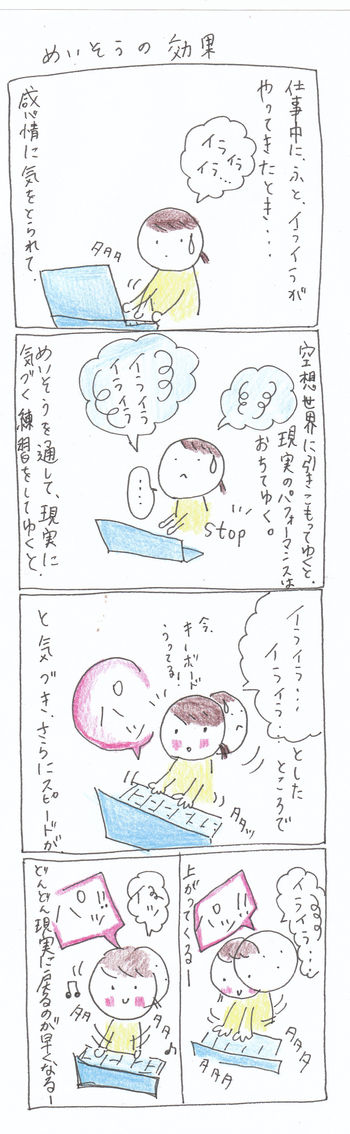 めいそうの効果
仕事中に、ふと、イライラが
やってきたとき・・・
イライラ
イライラ…
タタタ
感情に気をとられて、
空想世界に引きこもってゆくと、
現実のパフォーマンスは
おちてゆく。
イライラ
イライラ
イライラ
・・・
stop
めいそうを通して、現実に
気づく練習をしてゆくと、
イライラ・・・
イライラ・・
とした
ところで
今、
キーボード
うってる!
パッ
タタッ
と気づき、さらにスピードが
イライラ…
パッ!!
上がってくるー
タタタ
タタタ
はっ
パッ!!
タタ
タタ
どんどん現実に戻るのが早くなるー